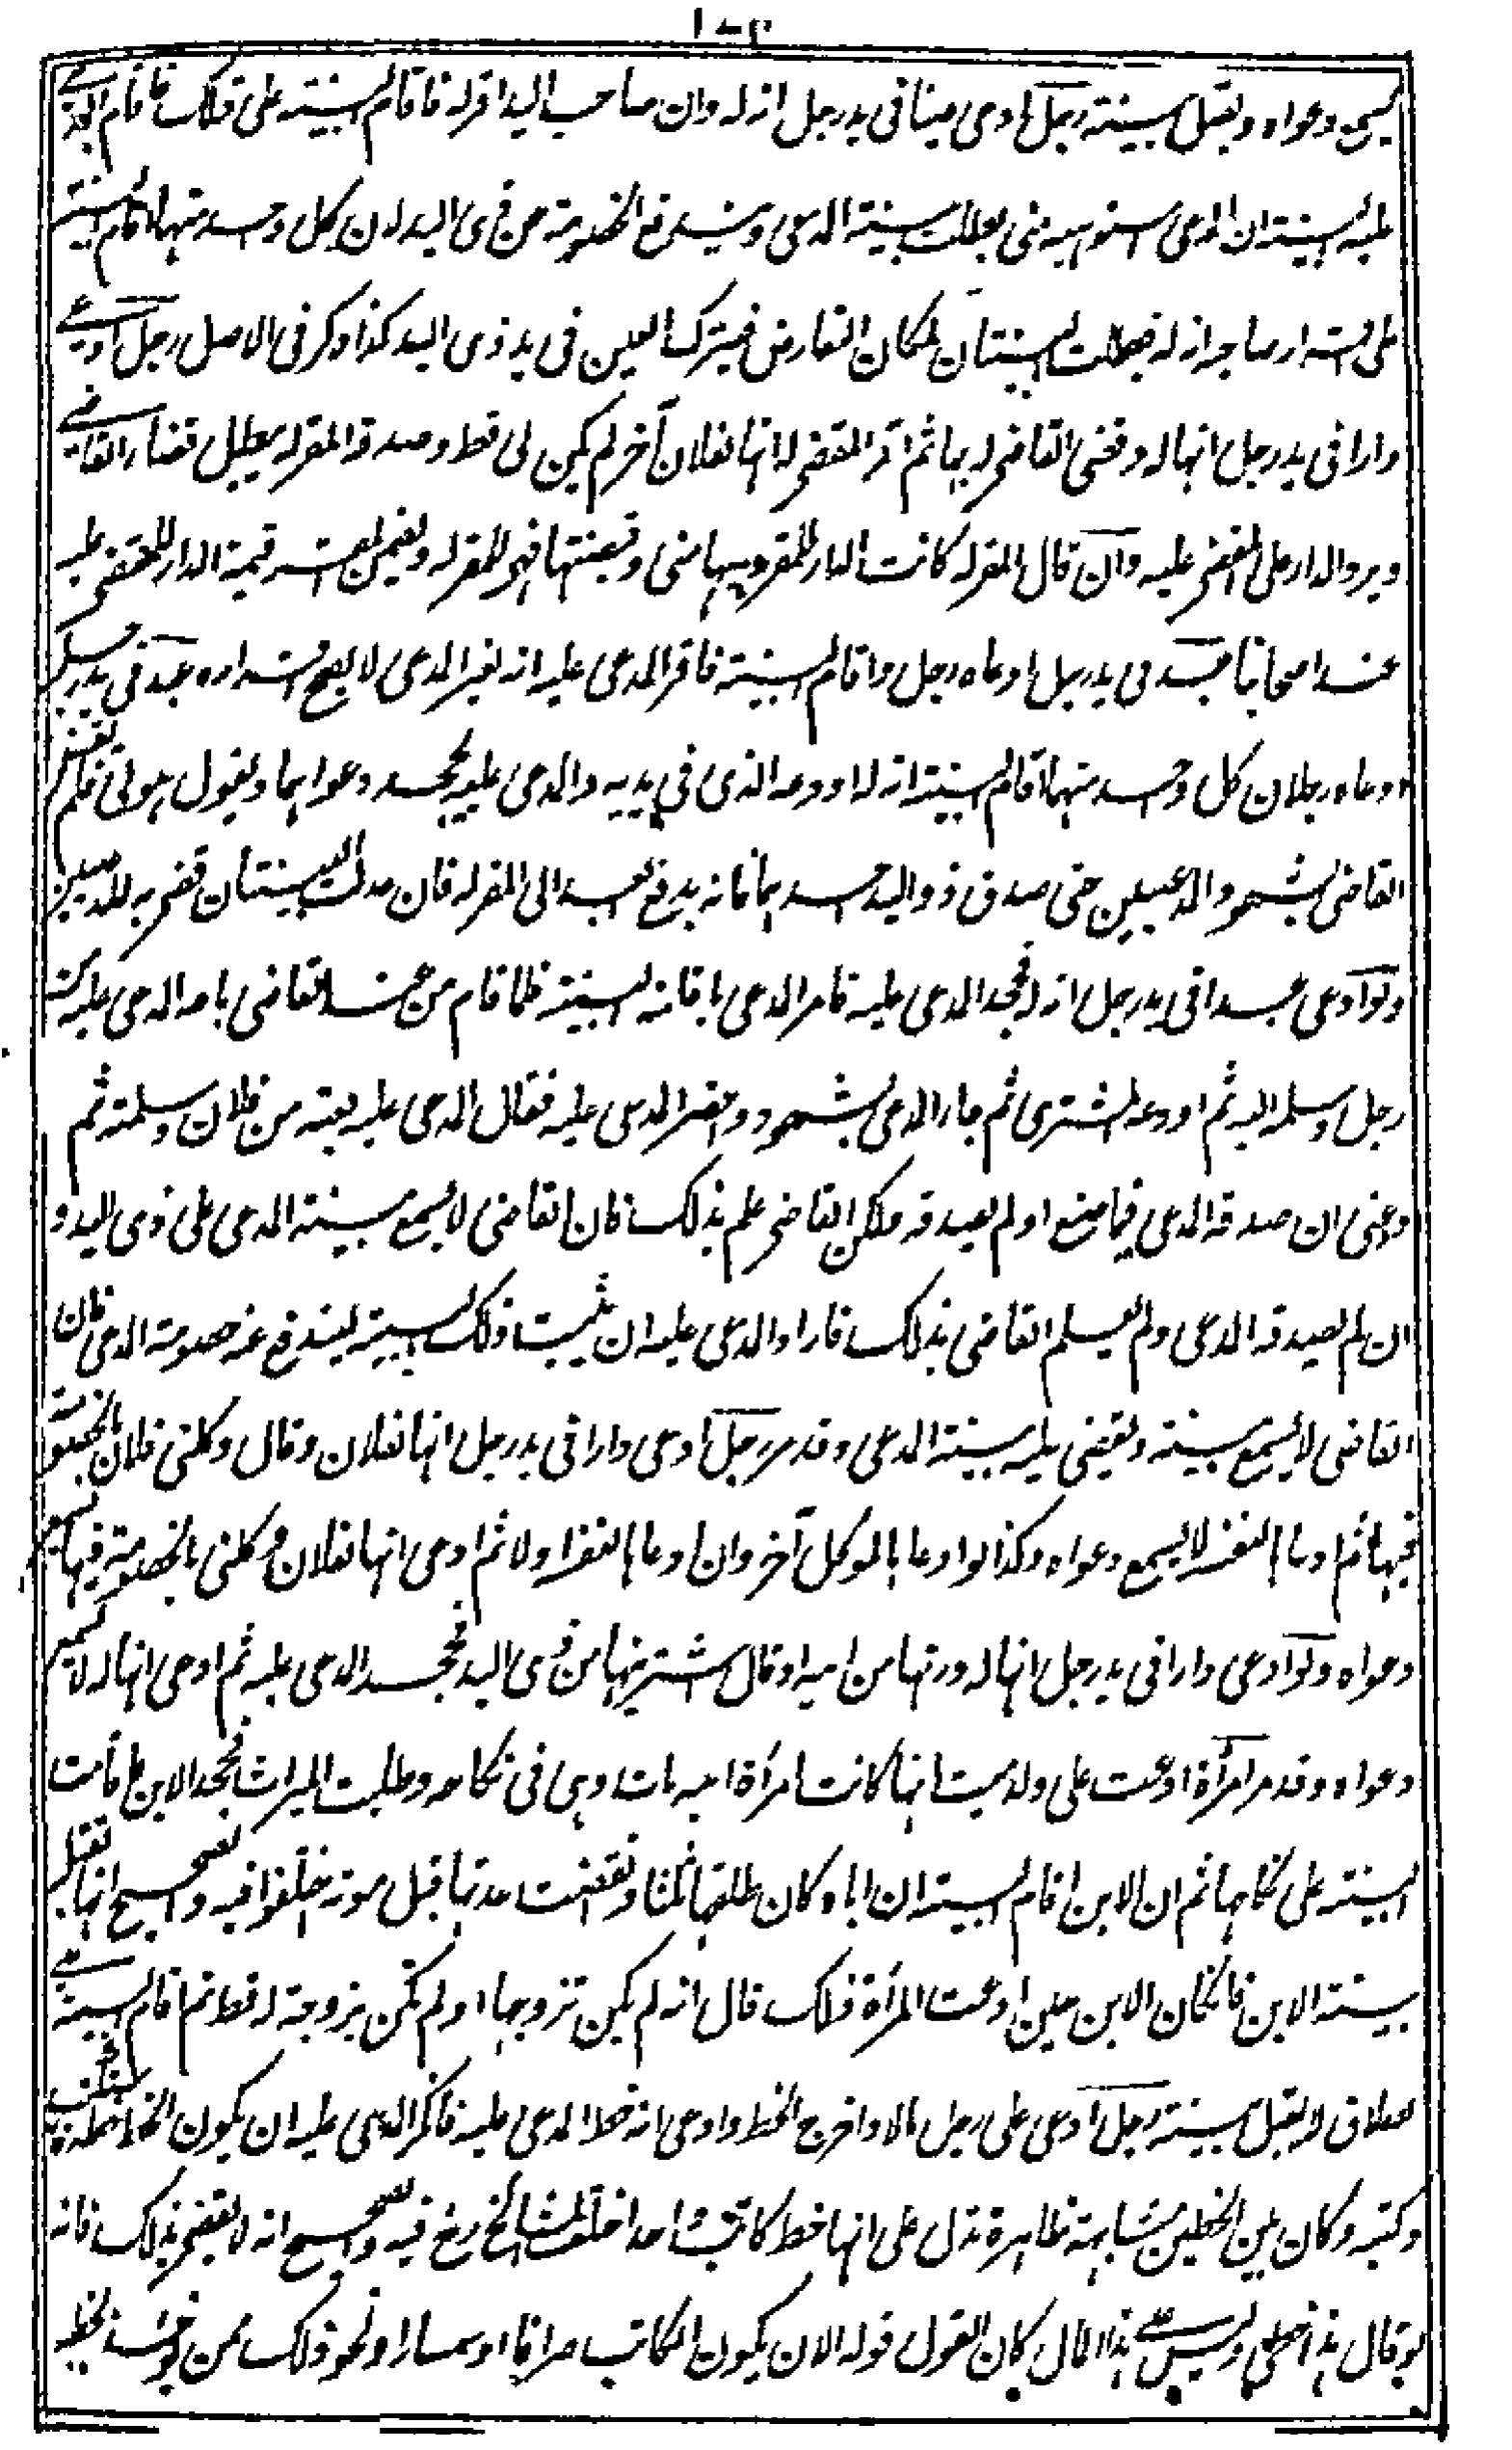 ١٠٣
يسمع دعواه ويقبل بينته رجل ادعى عينا في يد رجل انه له وان صاحب اليد اقر له فاقام البينة على ذلك فاقام المدعى
عليه البينة ان المدعي استوهبه مني بطلت بينة المدعي ويندفع الخصومة عن ذى اليد لان كل واحد منهما اقام البينة
على اقرار صاحبه انه له فبطلت البينتان لمكان التعارض فيترك العين في يد ذى اليد كذا ذكر في الاصل رجل ادعى
دارا في يد رجل انها له وقضى القاضي له بها ثم اقر المقضي له انها لفلان آخر لم يكن لى قط وصدقه المقر له يبطل قضاء القاضي
ويرد الدار على المقضي عليه وان قال المقر له كانت الدار للمقر وهبها منى وقبضتها فهي للمقر له ويضمن المقر قيمة الدار للمقضي عليه
عند اصحابنا عبد في يد رجل ادعاه رجل واقام البينة فاقر المدعى عليه انه لغير المدعي لا يصح اقراره عبد في يد رجل
ادعاه رجلان كل واحد منهما اقام البينة انه له اودعه الذى في يديه والمدعى عليه يجحد دعواهما ويقول هو لى فلم يقض
القاضي بشهود المدعيين حتى صدق ذو اليد احدهما فانه يدفع العبد الى المقر له فان عدلت البينتان قضى به للمدعيين
ولو ادعى عبدا في يد رجل انه له فجحد المدعى عليه فامر المدعي باقامة البينة فلما قام من عند القاضي باعه المدعى عليه من
رجل وسلمه اليه ثم اودعه المشترى ثم جاء المدعي بشهود وحضر المدعى عليه فقال المدعى عليه بعته من فلان وسلمته ثم
اودعنى ان صدقه المدعي فيما صنع او لم يصدقه ولكن القاضي علم بذلك فان القاضي لا يسمع بينة المدعي على ذى اليد و
ان لم يصدقه المدعي ولم يعلم القاضي بذلك فاراد المدعى عليه ان يثبت ذلك بالبينة ليندفع عنه خصومة المدعي فان
القاضي لا يسمع بينته ويقضي عليه ببينة المدعي وقد مر رجل ادعى دارا في يد رجل انها لفلان وقال وكلنى فلان بالخصومة
فيها ثم ادعاها لنفسه لا يسمع دعواه وكذا لو ادعاها لموكل آخر وان ادعاها لنفسه اولا ثم ادعى انها لفلان وكلنى بالخصومة فيها يسمع
دعواه ولو ادعى دارا في يد رجل انها له ورثها من ابيه او قال اشتريتها من ذى اليد فجحد المدعى عليه ثم ادعى انها له لا يسمع
دعواه وقد مر امرأة ادعت على ولد ميت انها كانت امرأة ابيه مات وهى في نكاحه وطلبت الميراث فجحد الابن فاقامت
البينة على نكاحها ثم ان الابن اقام البينة ان اباه كان طلقها ثلثا وانقضت عدتها قبل موته اختلفوا فيه والصحيح انها تقبل
بينة الابن فان كان الابن حين ادعت المرأة ذلك قال انه لم يكن تزوجها او لم تكن بزوجة له قط ثم اقام البينة على
الطلاق لا يقبل بينته رجل ادعى على رجل مالا واخرج الخط وادعى انه خط المدعى عليه فانكر المدعى عليه ان يكون الخط خطه فاستكتب
وكتبه وكان بين الخطين مشابهة ظاهرة تدل على انها خط كاتب واحد اختلف المشائخ رح فيه والصحيح انه لا يقضي بذلك فانه
لو قال هذا خطى وليس على هذا المال كان القول قوله الا ان يكون الكاتب صرافا او سمسارا او نحو ذلك ممن يؤخذ بخطه